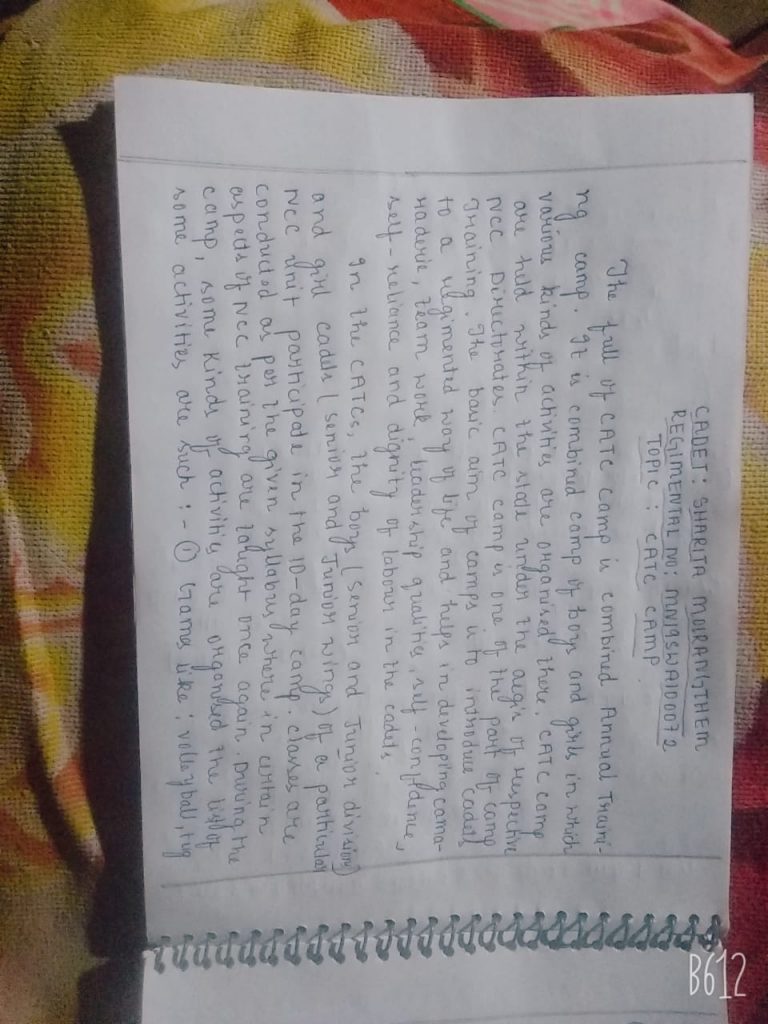 CADET: SHARITA MOIRANGTHEM
REGIMENTAL NO: MN19SWA100072
TOPIC : CATC CAMP
The full of CATC camp is combined Annual Traini-
ng camp. It is combined camp of boys and girls in which
various kinds of activities are organised there. CATC camp
are held within the state under the aegis of respective
NCC Directorates. CATC camp is one of the part of camp
training. The basic aim of camps is to introduce cadets
to a regimented way of life and helps in developing cama-
raderie, team work, leadership qualities, self-confidence,
self-reliance and dignity of labour in the cadets.
In the CATCs, the boys (senior and Junior division)
and girl cadets (senior and Junior wings) of a particular
NCC unit participate in the 10-day camp. Classes are
conducted as per the given syllabus where in certain
aspects of NCC training are taught once again. During the
camp, some kinds of activities are organised the list of
some activities are such :- ① Games like : volleyball, tug
B612